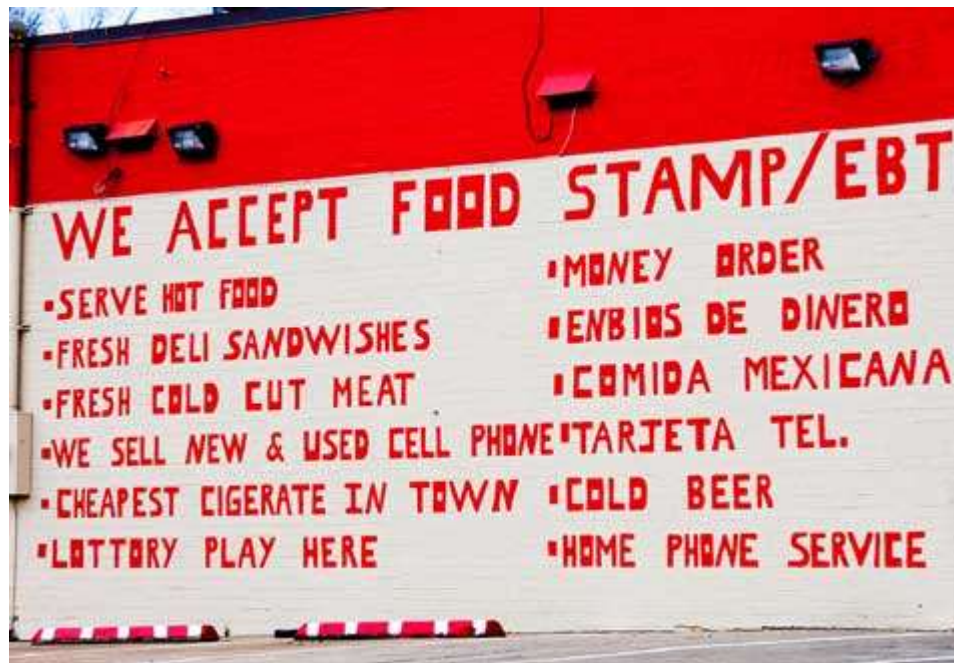 WE ACCEPT FOOD STAMP/EBT
▪SERVE HOT FOOD
▪FRESH DELI SANDWISHES
▪FRESH COLD CUT MEAT
▪WE SELL NEW & USED CELL PHONE
▪CHEAPEST CIGERATE IN TOWN
▪LOTTORY PLAY HERE
▪MONEY ORDER
▪ENBIOS DE DINERO
▪COMIDA MEXICANA
▪TARJETA TEL.
▪COLD BEER
▪HOME PHONE SERVICE